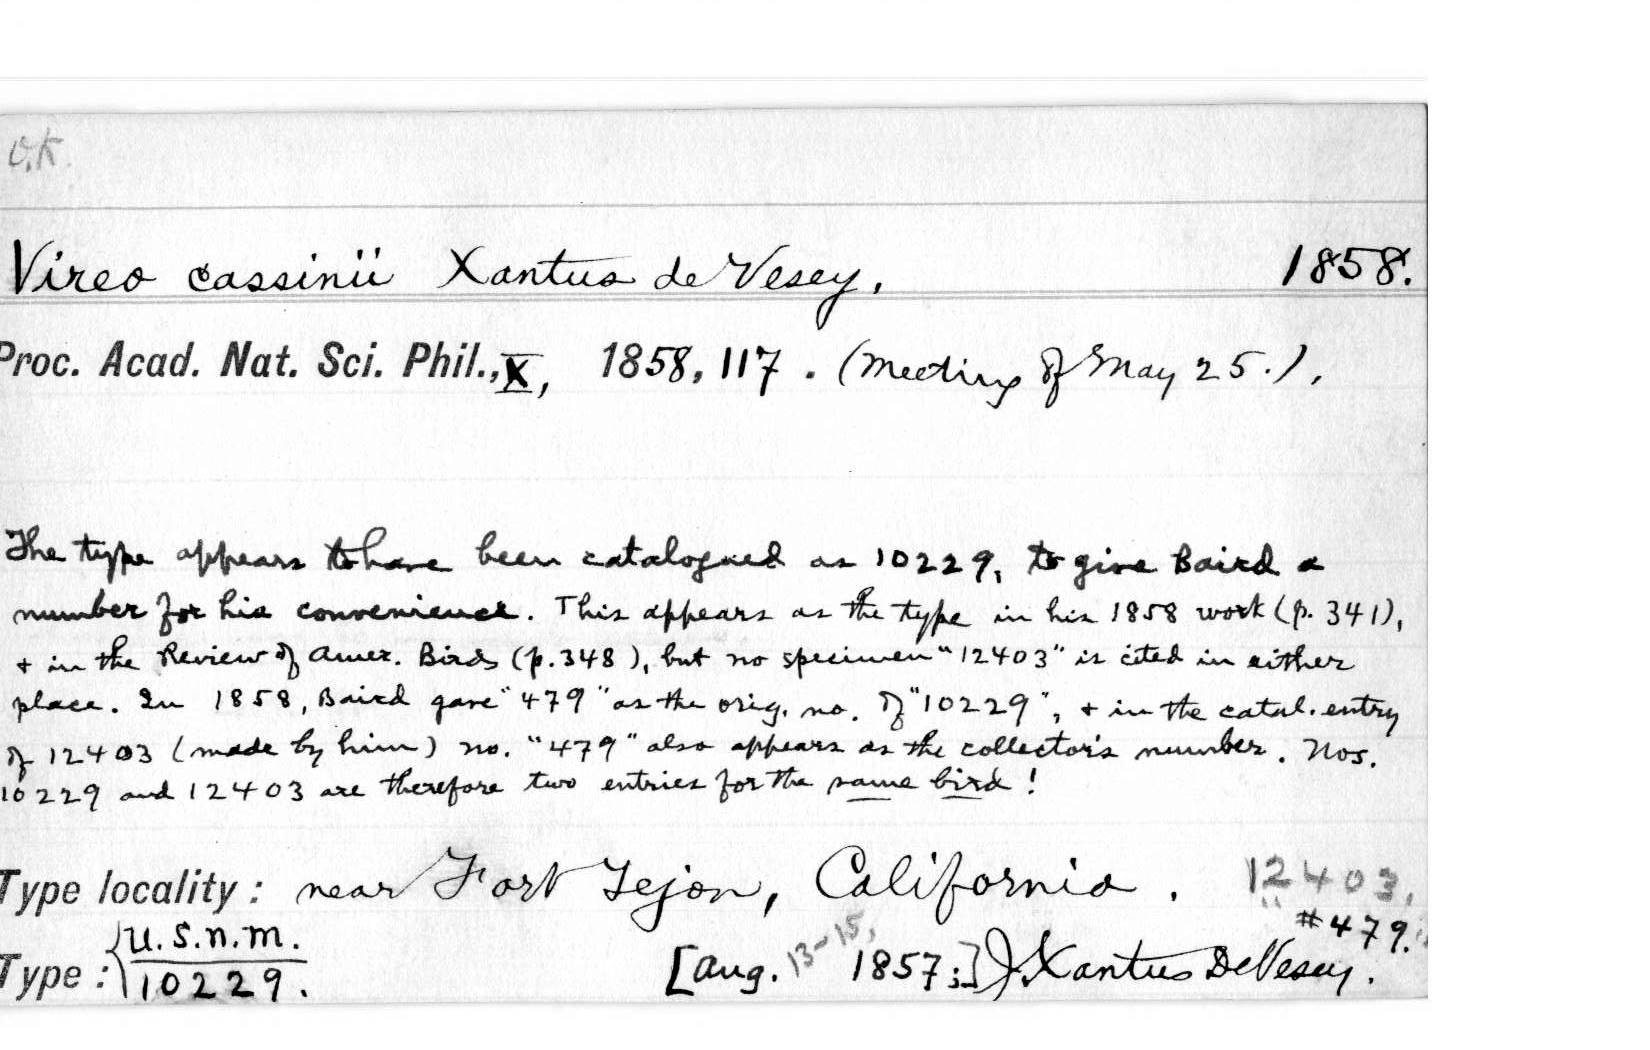 O.K.
Vireo cassinii Xantus de Vesey, 1858.
Proc. Acad. Nat. Sci. Phil., X, 1858, 117. (Meeting of May 25.),
The type appears to have been catalogued as 10229, to give Baird a
number for his convenience. This appears as the type in his 1858 work (p. 341),
+ in the Review of Amer. Birds (p. 348), but no specimen "12403" is cited in either
place. In 1858, Baird gave "479" as the orig. no. of "10229", + in the catal. entry
of 12403 (made by him) no. "479" also appears as the collector's number. Nos.
10229 and 12403 are therefore two entries for the same bird!
Type locality: near Fort Tejon, California. 12403,
#479.
Type: { U.S.N.M. 10229. [Aug. 13-15, 1857;] J. Xantus DeVesey.